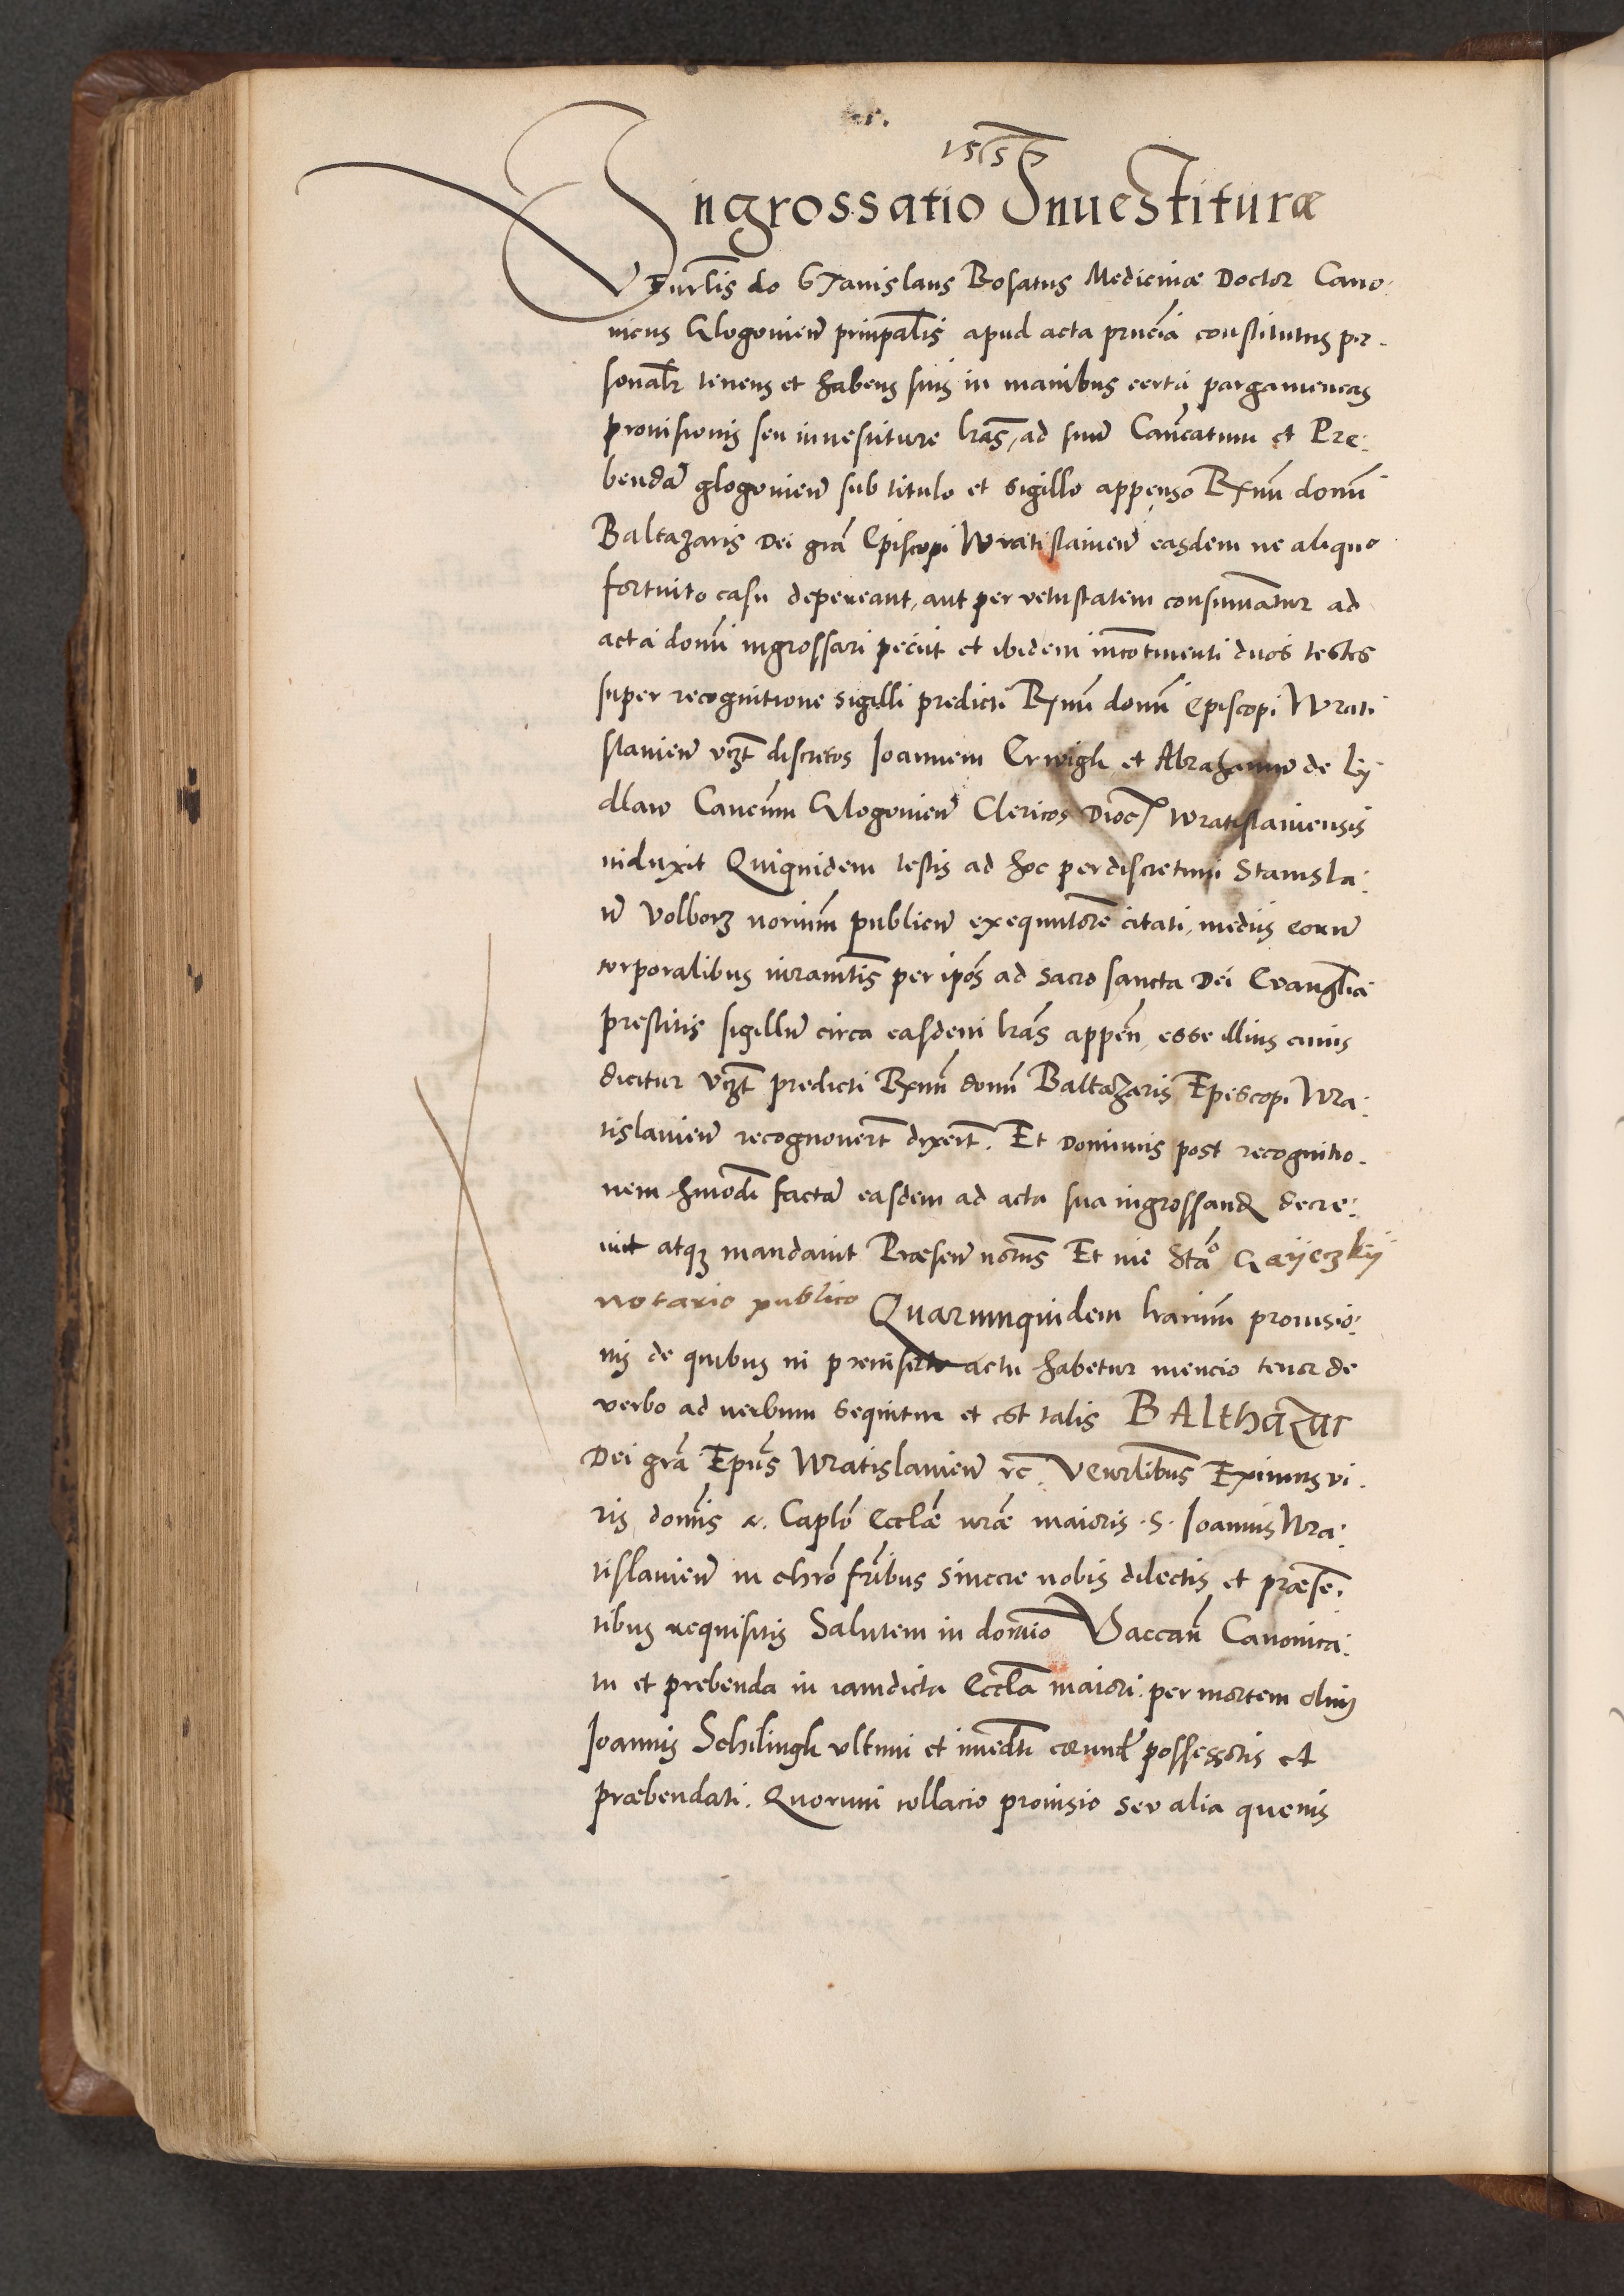 Ingrossatio Inuestituræ
Vēnrlis do Stanislaus Rosatus Medicinæ Doctor Cano:
nicus Glogovien̄ prinpalis apud acta pn̄cia constitutus per-
sonal̄r tenens et habens suis in manibus certas pargameneas
prouisionis seu inuestiture l̄ras, ad suū Can̄catum et Pre:
bendā glogovien̄ sub titulo et sigillo appenso Rx̄mi domi
Baltazaris Dei grā Episcopi Wratislavien̄ easdem ne aliquo
fortuito casu depereant, aut per vetustatem consumantur ad
acta domi ingrossari peciit et ibidem incōtinenti duos testes
super recognitione sigilli predicti Rx̄mi domi Episcopi Wrati
slavien̄ vcz̄t discretos Joannem Erwigk et Abrahamū de Ly
dlaw Canc̄um Glogovien̄ Clericos Dioc̄ Wratislaviensis
induxit Quiquidem testes ad hoc per discretum Stanisla:
ū Volborz nor̄ium publicū exequutorē citati, mediis eorū
corporalibus iuramt̄is per ip̄os ad sacro sancta Dei Evanglia
prestitis sigillū circa easdem l̄ras appen̄, esse illius cuius
dicitur vcz̄t predicti Rx̄mi domi Baltazaris Episcopi Wra:
tislavien̄ recognouer̄t dixer̄t. Et Dominus post recognitio-
nem hm̄odi factā easdem ad acta sua ingrossand decre:
uit atqz mandauit Præsen̄ nōtus Et me Stāo Gayeczky
notario publico Quarumquidem l̄rarum prouisio:
nis de quibus in preinserto actu habetur mencio tenor de
verbo ad verbum sequitur et est talis BAlthazar
Dei grā Epūs Wratislavien̄ rc̄. Vēnrlibus Eximiis vi-
ris, domis &. Caplō Eccl̄æ nr̄æ maioris .S. Joannis Wra:
tislavien̄ in chrō fr̄ibus sincere nobis dilectis et præsen̄-
tibus requisitis Salutem in domino Vaccan̄ Canonica:
tu et prebenda in iamdicta Eccl̄a maiori. per mortem olim
Joannis Schilingk ultimi et imedt̄i eorund possessoris et
præbendati. Quorum collacio prouisio seu alia queuis